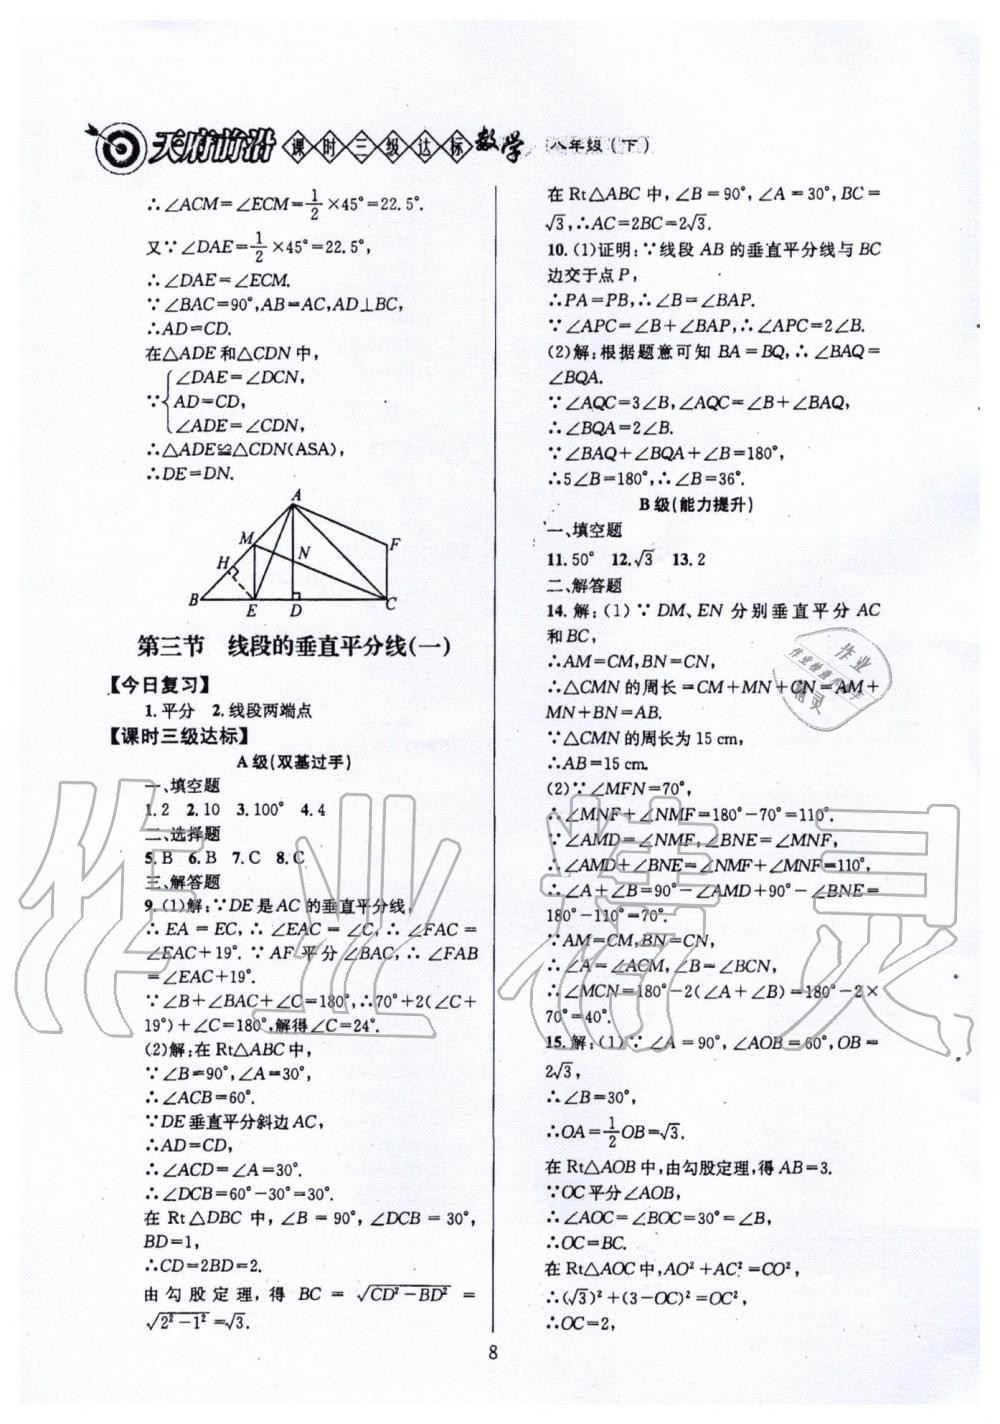 天府前沿 课时三级达标 数学 八年级(下)
∴∠ACM=∠ECM=1/2×45°=22.5°.
又∵∠DAE=1/2×45°=22.5°,
∴∠DAE=∠ECM.
∵∠BAC=90°,AB=AC,AD⊥BC,
∴AD=CD.
在△ADE和△CDN中,
∠DAE=∠DCN,
∵AD=CD,
∠ADE=∠CDN,
∴△ADE≌△CDN(ASA),
∴DE=DN.
A
M
F
N
H
B
E
D
C
第三节 线段的垂直平分线(一)
【今日复习】
1.平分 2.线段两端点
【课时三级达标】
A级(双基过手)
一、填空题
1.2 2.10 3.100° 4.4
二、选择题
5.B 6.B 7.C 8.C
三、解答题
9.(1)解:∵DE是AC的垂直平分线,
∴EA=EC,∴∠EAC=∠C,∴∠FAC=
∠EAC+19°.∵AF平分∠BAC,∴∠FAB
=∠EAC+19°.
∵∠B+∠BAC+∠C=180°,∴70°+2(∠C+
19°)+∠C=180°,解得∠C=24°.
(2)解:在Rt△ABC中,
∵∠B=90°,∠A=30°,
∴∠ACB=60°.
∵DE垂直平分斜边AC,
∴AD=CD,
∴∠ACD=∠A=30°.
∴∠DCB=60°-30°=30°.
在Rt△DBC中,∠B=90°,∠DCB=30°,
BD=1,
∴CD=2BD=2.
由勾股定理,得BC=√(CD²-BD²)=
√(2²-1²)=√3.
在Rt△ABC中,∠B=90°,∠A=30°,BC=
√3,∴AC=2BC=2√3.
10.(1)证明:∵线段AB的垂直平分线与BC
边交于点P,
∴PA=PB,∴∠B=∠BAP.
∵∠APC=∠B+∠BAP,∴∠APC=2∠B.
(2)解:根据题意可知BA=BQ,∴∠BAQ=
∠BQA.
∵∠AQC=3∠B,∠AQC=∠B+∠BAQ,
∴∠BQA=2∠B.
∵∠BAQ+∠BQA+∠B=180°,
∴5∠B=180°,∴∠B=36°.
B级(能力提升)
一、填空题
11.50° 12.√3 13.2
二、解答题
14.解:(1)∵DM、EN分别垂直平分AC
和BC,
∴AM=CM,BN=CN,
∴△CMN的周长=CM+MN+CN=AM+
MN+BN=AB.
∵△CMN的周长为15 cm,
∴AB=15 cm.
(2)∵∠MFN=70°,
∴∠MNF+∠NMF=180°-70°=110°.
∵∠AMD=∠NMF,∠BNE=∠MNF,
∴∠AMD+∠BNE=∠NMF+∠MNF=110°,
∴∠A+∠B=90°-∠AMD+90°-∠BNE=
180°-110°=70°.
∵AM=CM,BN=CN,
∴∠A=∠ACM,∠B=∠BCN,
∴∠MCN=180°-2(∠A+∠B)=180°-2×
70°=40°.
15.解:(1)∵∠A=90°,∠AOB=60°,OB=
2√3,
∴∠B=30°,
∴OA=1/2OB=√3.
在Rt△AOB中,由勾股定理,得AB=3.
∵OC平分∠AOB,
∴∠AOC=∠BOC=30°=∠B,
∴OC=BC.
在Rt△AOC中,AO²+AC²=CO²,
∴(√3)²+(3-OC)²=OC²,
∴OC=2,
8
作业精灵